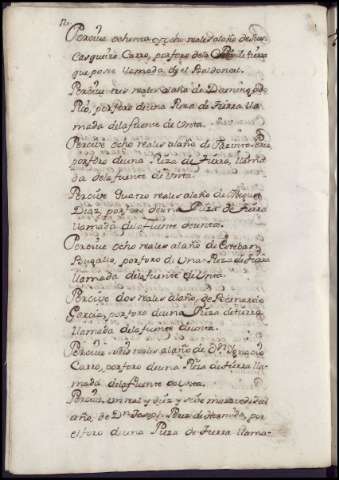 Percive ochenta ocho reales alaño de
Casqueiro Carro, por foro dela de tierra
que posee llamada de el Baldoncel.
Percive tres reales alaño de Domingo de
Pico, por foro de una Pieza de tierra lla-
mada de la fuente de Unta.
Percive ocho reales alaño de
por foro de una Pieza de tierra, llama-
da de la fuente de Unta.
Percive quatro reales alaño de Miguel
Diaz, por foro de una Pieza de tierra
llamada de la fuente de unta.
Percive ocho reales alaño de Esteban
por foro de Una Pieza de tierra
llamada de la fuente de Unta
Percive dos reales alaño, de Bernardo
Garcia, por foro de una Pieza de tierra
llamada de la fuente de unta.
Percive seis reales alaño de Dn.
Carro, por foro de una Pieza de tierra lla-
mada de la fuente de Unta.
Percive un real y diez y siete maravedises al
año, de Dn Joseph Perez de por
el foro de una Pieza de tierra llama-